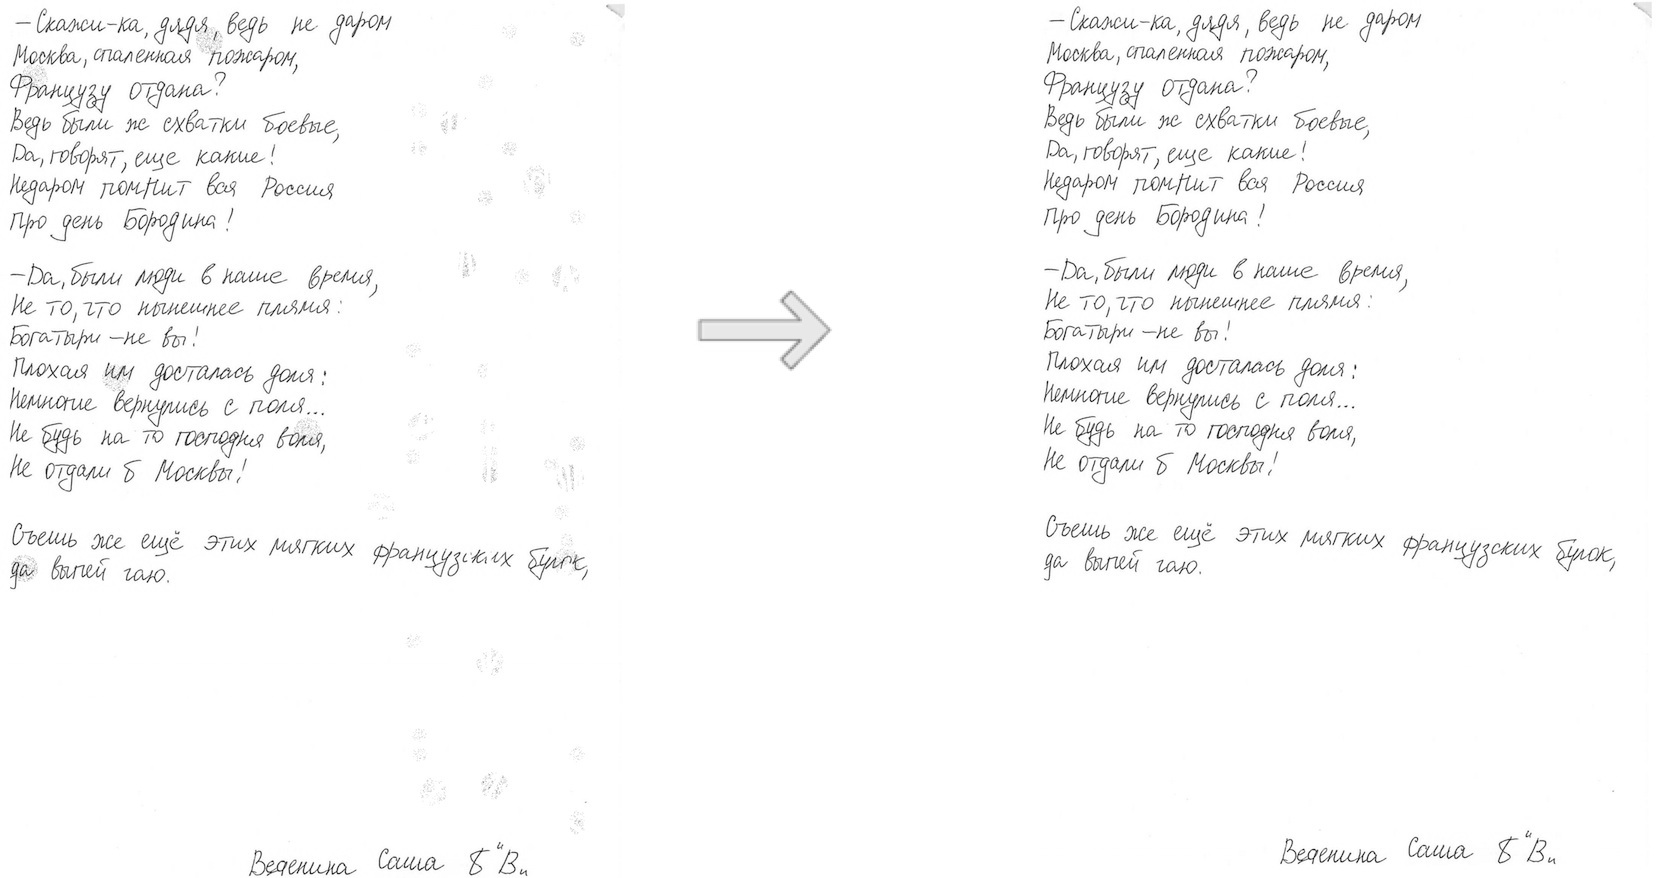 –Скажи-ка, дядя, ведь не даром
Москва, спаленная пожаром,
Французу отдана?
Ведь были ж схватки боевые,
Да, говорят, еще какие!
Недаром помнит вся Россия
Про день Бородина!
–Да, были люди в наше время,
Не то, что нынешнее племя:
Богатыри –не вы!
Плохая им досталась доля:
Немногие вернулись с поля...
Не будь на то господня воля,
Не отдали б Москвы!
Съешь же ещё этих мягких французских булок,
да выпей чаю.
Веденина Саша Б "В"
–Скажи-ка, дядя, ведь не даром
Москва, спаленная пожаром,
Французу отдана?
Ведь были ж схватки боевые,
Да, говорят, еще какие!
Недаром помнит вся Россия
Про день Бородина!
–Да, были люди в наше время,
Не то, что нынешнее племя:
Богатыри –не вы!
Плохая им досталась доля:
Немногие вернулись с поля...
Не будь на то господня воля,
Не отдали б Москвы!
Съешь же ещё этих мягких французских булок,
да выпей чаю.
Веденина Саша Б "В"